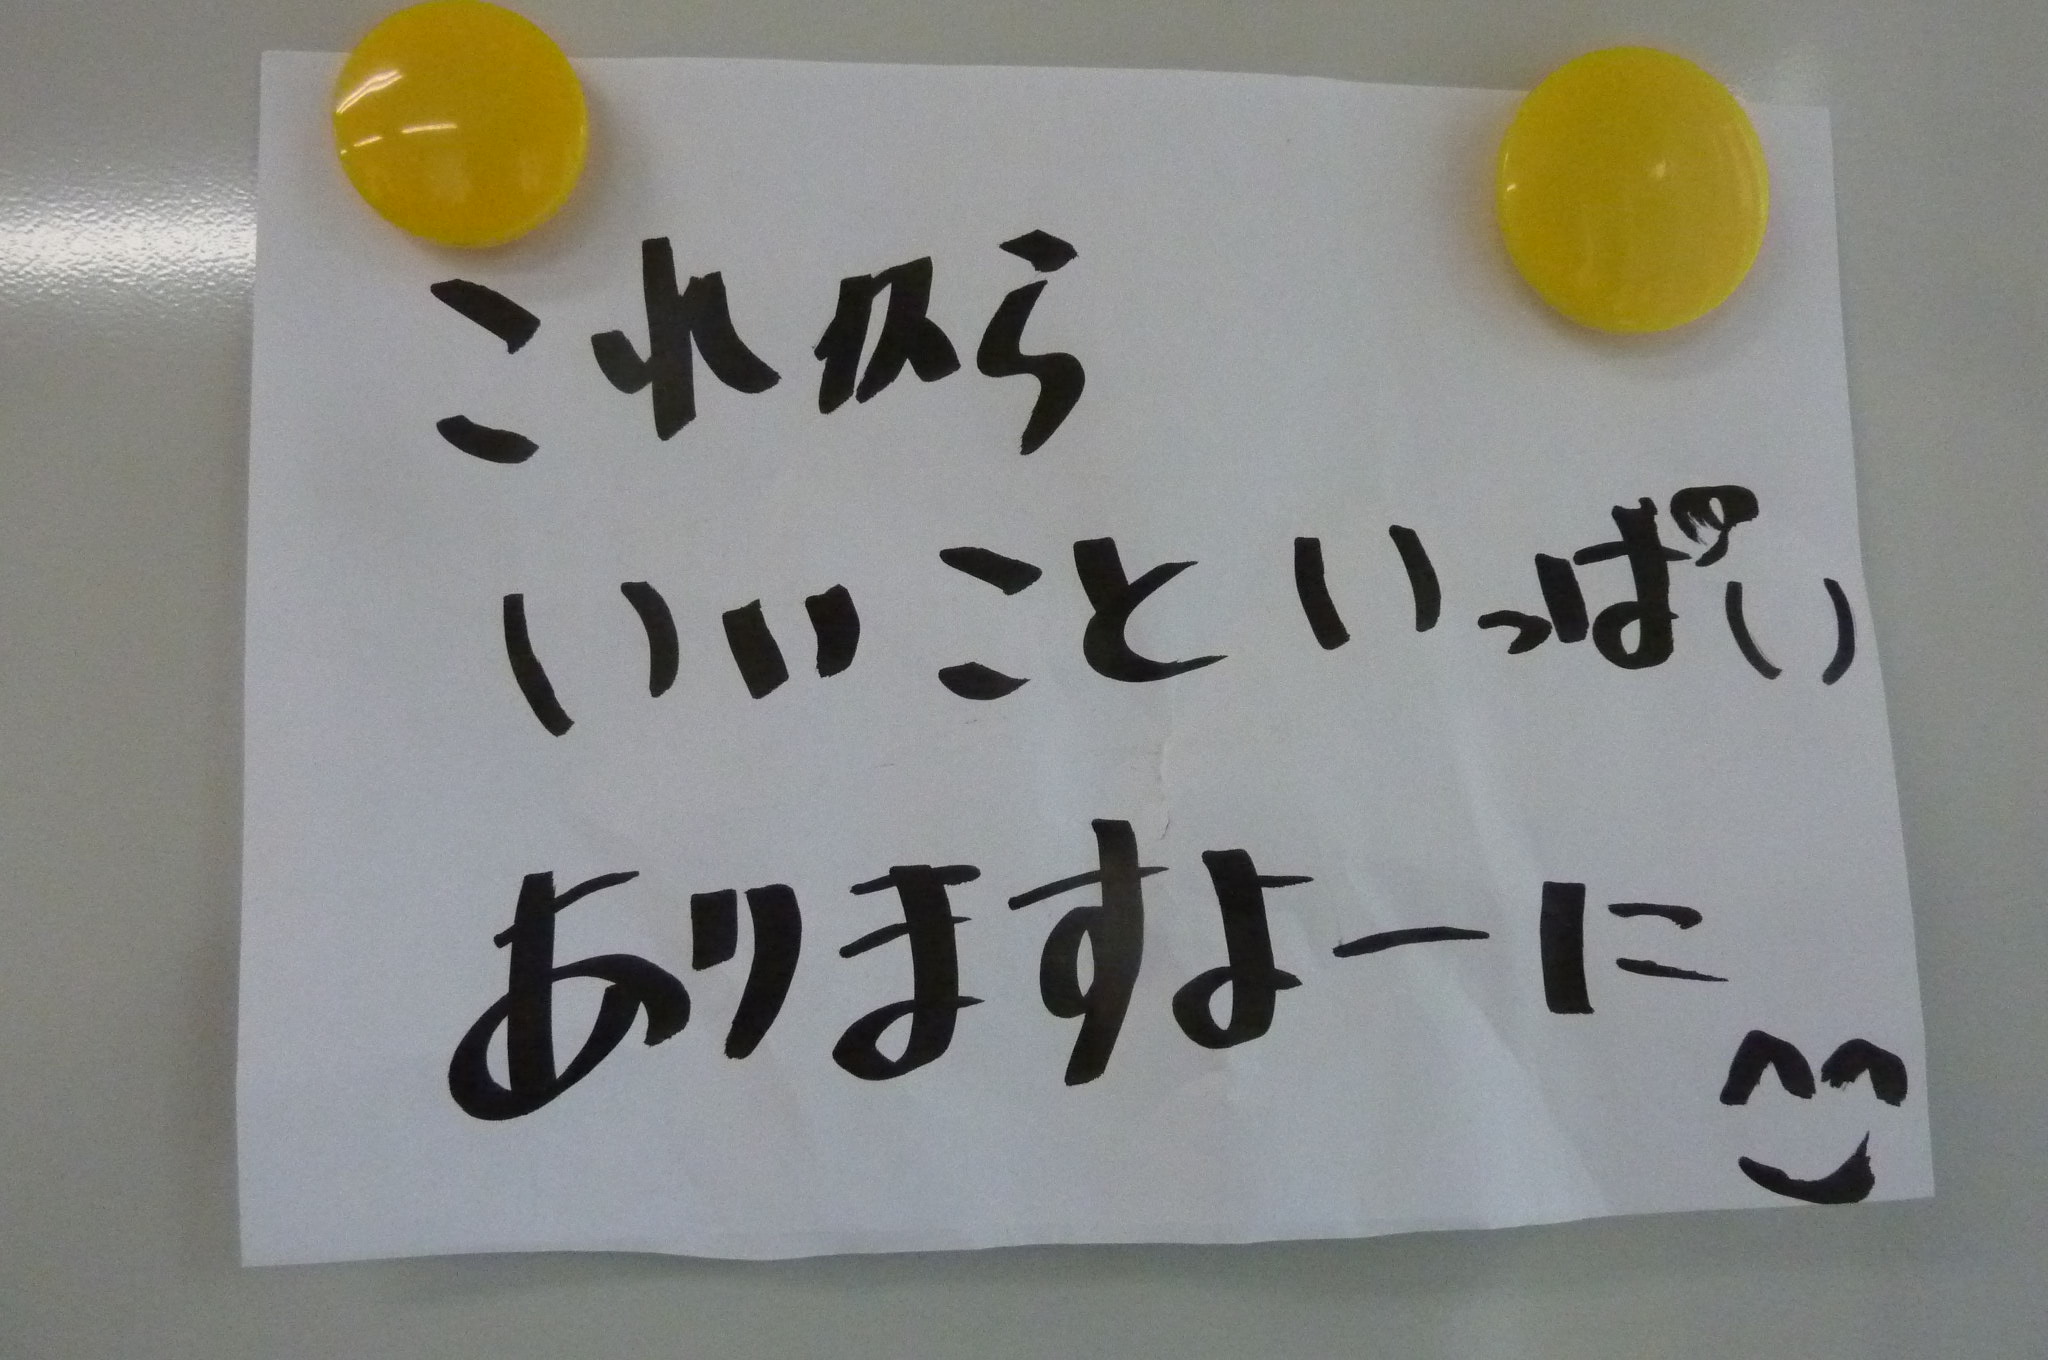 これから
いいこといっぱい
ありますよーに